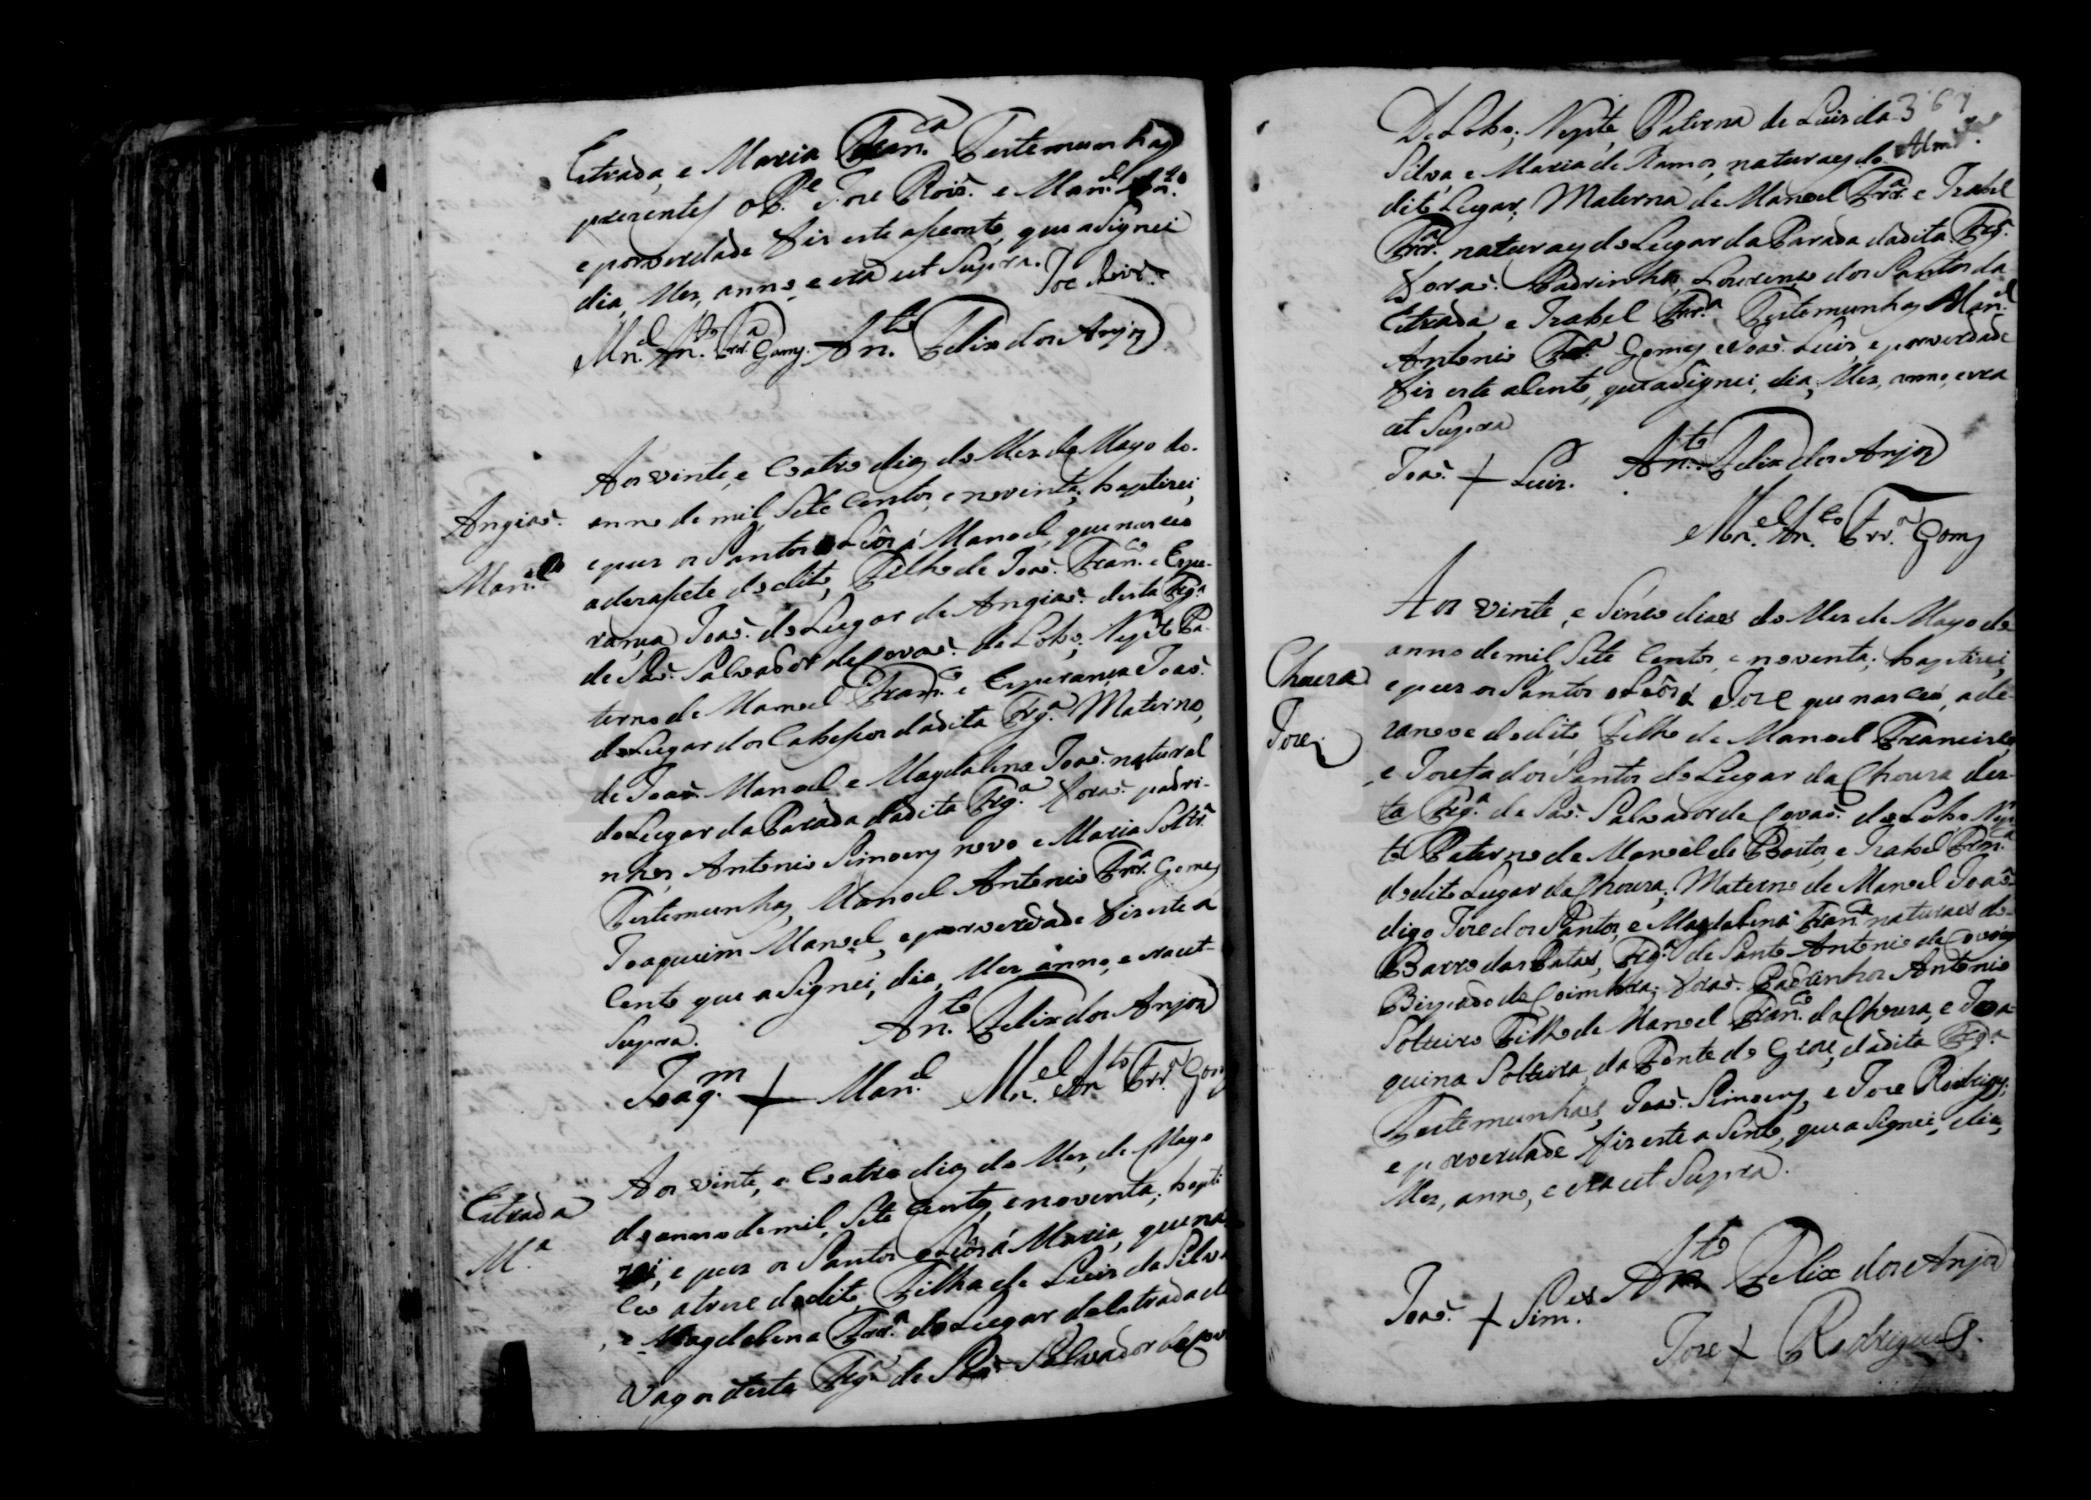 Estrada, e Maria Fran.ca Testemunhas
prezentes o P.e Joze Roiz. e Man.el An.to
e por verdade fis este asento, que asignei
dia, Mes, anno, e era ut Supra.
M.el An.to Frr.a Gomes. An.to Felix dos Anjos
Angiaõ.
Man.el
Aos vinte, e Coatro dias do Mes de Mayo do
anno de mil Sete Centos, e noventa, baptizei,
e pus os Santos oLeos á Manoel, que nasceo
a dezasete do dito, Filho de Joaõ Fran.co e Espe-
rança Joaõ. do Lugar de Angiaõ. desta Frg.a
de Saõ. Salvador de Covaõ. de Lobo; Neptto Pa-
terno de Manoel Fran.co e Esperança Joaõ.
do Lugar dos Cabesos da dita Frg.a Materno,
de Joaõ Manoel e Magdalena Joaõ natural
do Lugar da Parada da dita Frg.a foraõ. padri-
nhos, Antonio Simoens novo e Maria Soltr.a
Testemunhas, Manoel Antonio Frr.a Gomes
Joaquim Manoel, e por verdade fis este a
Cento que aSignei, dia, Mes anno, e era ut-
Supra. An.to Felix dos Anjos
Joaq.m + Man.el M.el An.to Frr.a Gomes
Estrada
M.a
Aos vinte, e Coatro dias do Mes, de Mayo
do anno de mil, Sete Centos, e noventa; bapti
zei, e pus os Santos oLeos á Maria, que nas
Ceo a treze do dito, Filha de Luis da Silva
, e Magdalena Frr.a do Lugar da Estrada de
Vagos desta Frg.a de Saõ Salvador de Cov
367
De Lobo; Neptta, Paterna de Luis da
Silva, e Maria de Ramos, naturaes do
dito Lugar; Materna de Manoel Frr.a e Izabel
Frr.a naturaes do Lugar da Parada da dita Frg.a
foraõ. Padrinhos, Lourenço dos Santos da
Estrada e Izabel Frr.a Testemunhas Man.el
Antonio Frr.a Gomes e Joaõ. Luis, e por verdade
fis este aCento, que aSignei, dia, Mes, anno, e era
ut Supra
Joaõ. + Luis. An.to Felix dos Anjos
M.el An.to Frr.a Gomes
Choura
Joze
Aos vinte, e Sinco dias do Mes de Mayo do
anno de mil Sete Centos, e noventa; baptizei,
e pus os Santos oLeos á Joze que nasceo, a de-
zanove do dito, Filho de Manoel Francisco,
e Jozefa dos Santos do Lugar da Choura des-
ta Frg.a de Saõ. Salvador de Covaõ. do Lobo Nept
to Paterno de Manoel do Basto, e Izabel
do dito Lugar da Choura; Materno de Manoel Joaõ
digo Joze dos Santos, e Magdalena Fran.ca naturaes do
Barro das Patas, Frg.a de Santo Antonio de Covões
Bispado de Coimbra; foraõ. Padrinhos Antonio
Solteiro Filho de Manoel Fran.co da Choura, e Joa-
quina Solteira, da Fonte do Grou, da dita Frg.a
Testemunhas, Joaõ. Simoens, e Joze Rodrigues;
e por verdade fis este aSento, que aSignei, dia,
Mes, anno, e era ut Supra.
An.to Felix dos Anjos
Joaõ. + Sim.es
Joze + Rodrigues.